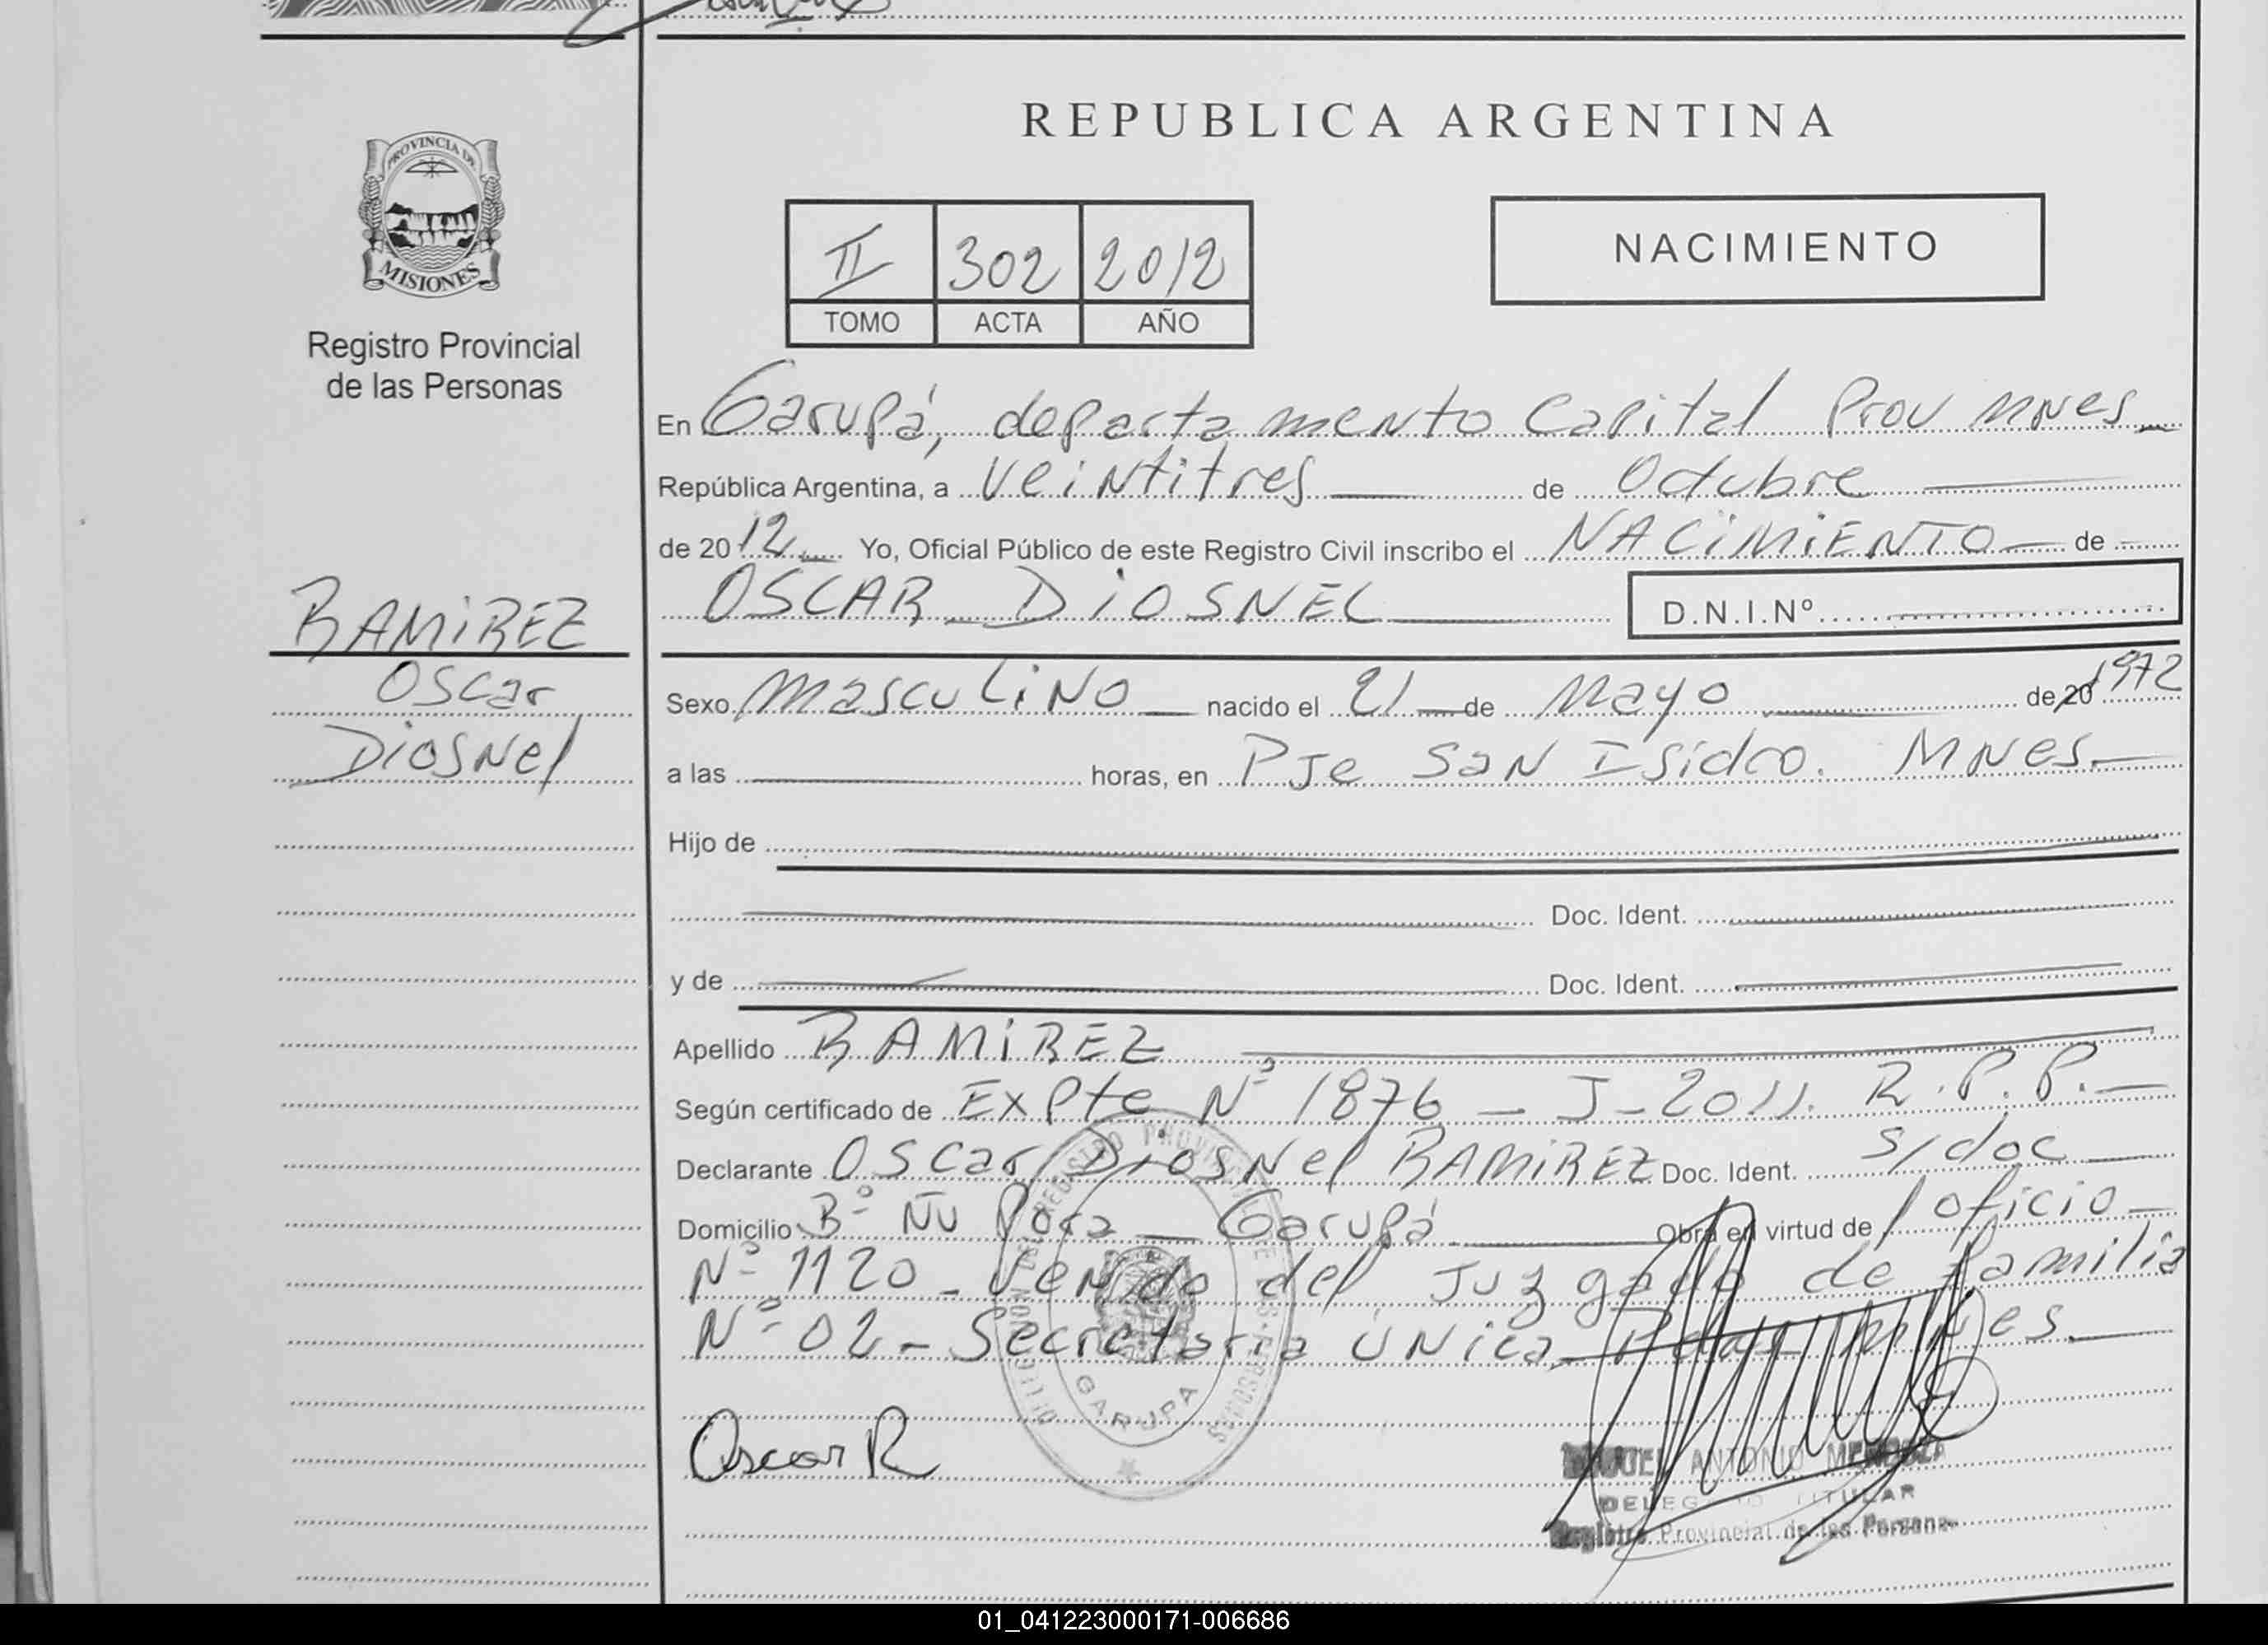 REPUBLICA ARGENTINA
PROVINCIA DE
MISIONES
Registro Provincial
de las Personas
II 302 2012
TOMO ACTA AÑO
NACIMIENTO
En Garupá, departamento Capital Prov Mnes
República Argentina, a veintitres de Octubre
de 2012 Yo, Oficial Público de este Registro Civil inscribo el NACIMIENTO de
OSCAR DIOSNEL D.N.I.Nº
RAMIREZ
Oscar
Diosnel
Sexo masculino nacido el 21 de Mayo de 20 1972
a las horas, en Pje San Isidro. Mnes.
Hijo de
Doc. Ident.
y de Doc. Ident.
Apellido RAMIREZ
Según certificado de Expte Nº 1876 - J - 2011. R.P.P.
Declarante Oscar Diosnel RAMIREZ Doc. Ident. s/doc
Domicilio Bº Ñu Pora - Garupá Obra en virtud de oficio
Nº 1120 - Venido del Juzgado de familia
Nº 02 - Secretaria única
GARUPA
Oscar R
ANTONIO MENDOZA
DELEGADO TITULAR
Registro Provincial de las Personas
01_041223000171-006686